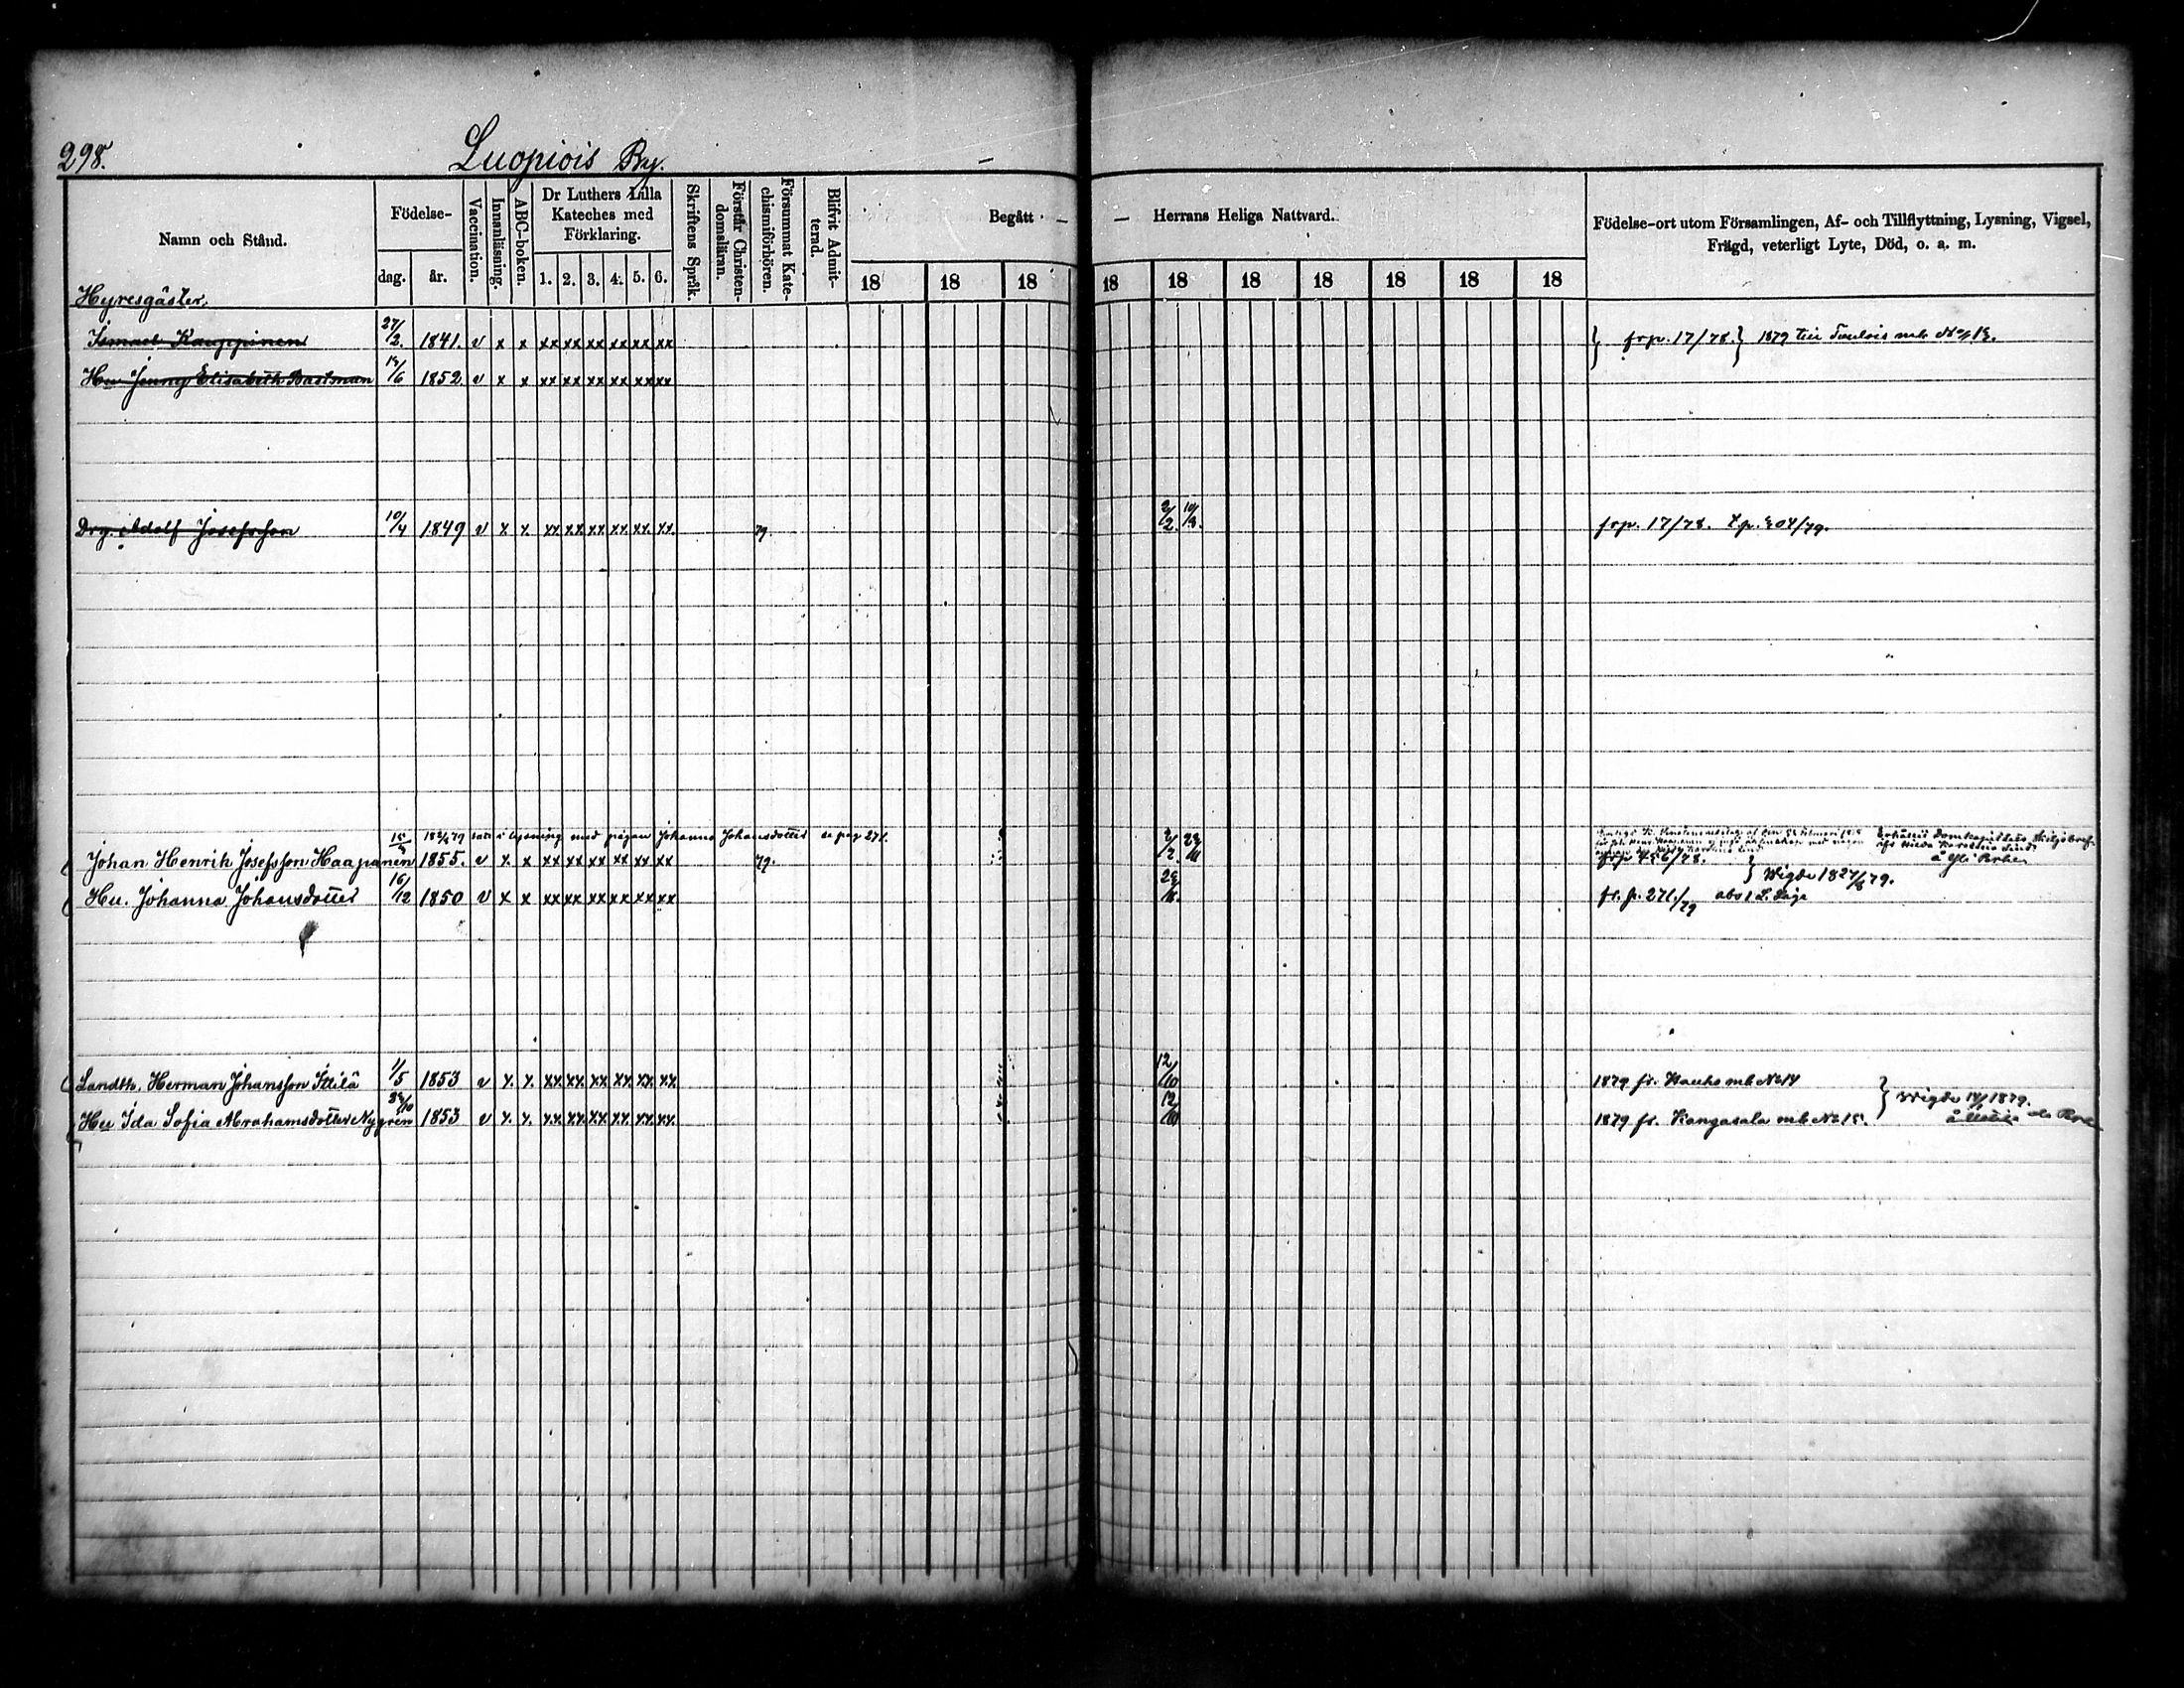 298.
Luopiois By.
Namn och Stånd.
Födelse-
dag.
år.
Vaccination.
Innanläsning.
ABC-boken.
Dr Luthers Lilla Kateches med Förklaring.
1. 2. 3. 4. 5. 6.
Skriftens Språk.
Förstår Christen-domsläran.
Försummat Kate-chismiförhören.
Blifvit Admit-terad.
Begått — — Herrans Heliga Nattvard.
18 18 18 18 18 18 18 18 18 18
Födelse-ort utom Församlingen, Af- och Tillflyttning, Lysning, Vigsel,
Frägd, veterligt Lyte, Död, o. a. m.
Hyresgäster.
Ismael Kauppinen 27/2. 1841. v x x xx xx xx xx xx xx } frp. 17/78. } 1879 till Tuulois mb No
Hu Jenny Elisabeth Bastman /6 1852 v x x xx xx xx xx xx xx
Drg. Adolf Josefsson 10/4 1849 v x x xx xx xx xx xx xx. 79. 2/2. frp. 17/78. t.p. 304/79.
1879 i lysning med pigan Johanna Johansdotter se pag 271.
Johan Henrik Josefsson Haapanen 1855. v x x xx xx xx xx xx xx 79. 2/2. frp 456/78. } Wigde 79.
Hu. Johanna Johansdotter 16/12 1850 v x x xx xx xx xx xx xx fr. p. 271./79
Landtb. Herman Johansson Ittilä 1/5 1853 v x. x. xx xx. xx xx xx. xx. 12/10 1879 fr. Hauho mb No 14
Hu Ida Sofia Abrahamsdotter Nygrén /10 1853 v x. x. xx xx. xx xx. xx. xx. 12/10 1879 fr. Kangasala mb No 15. } Wigde 1879.